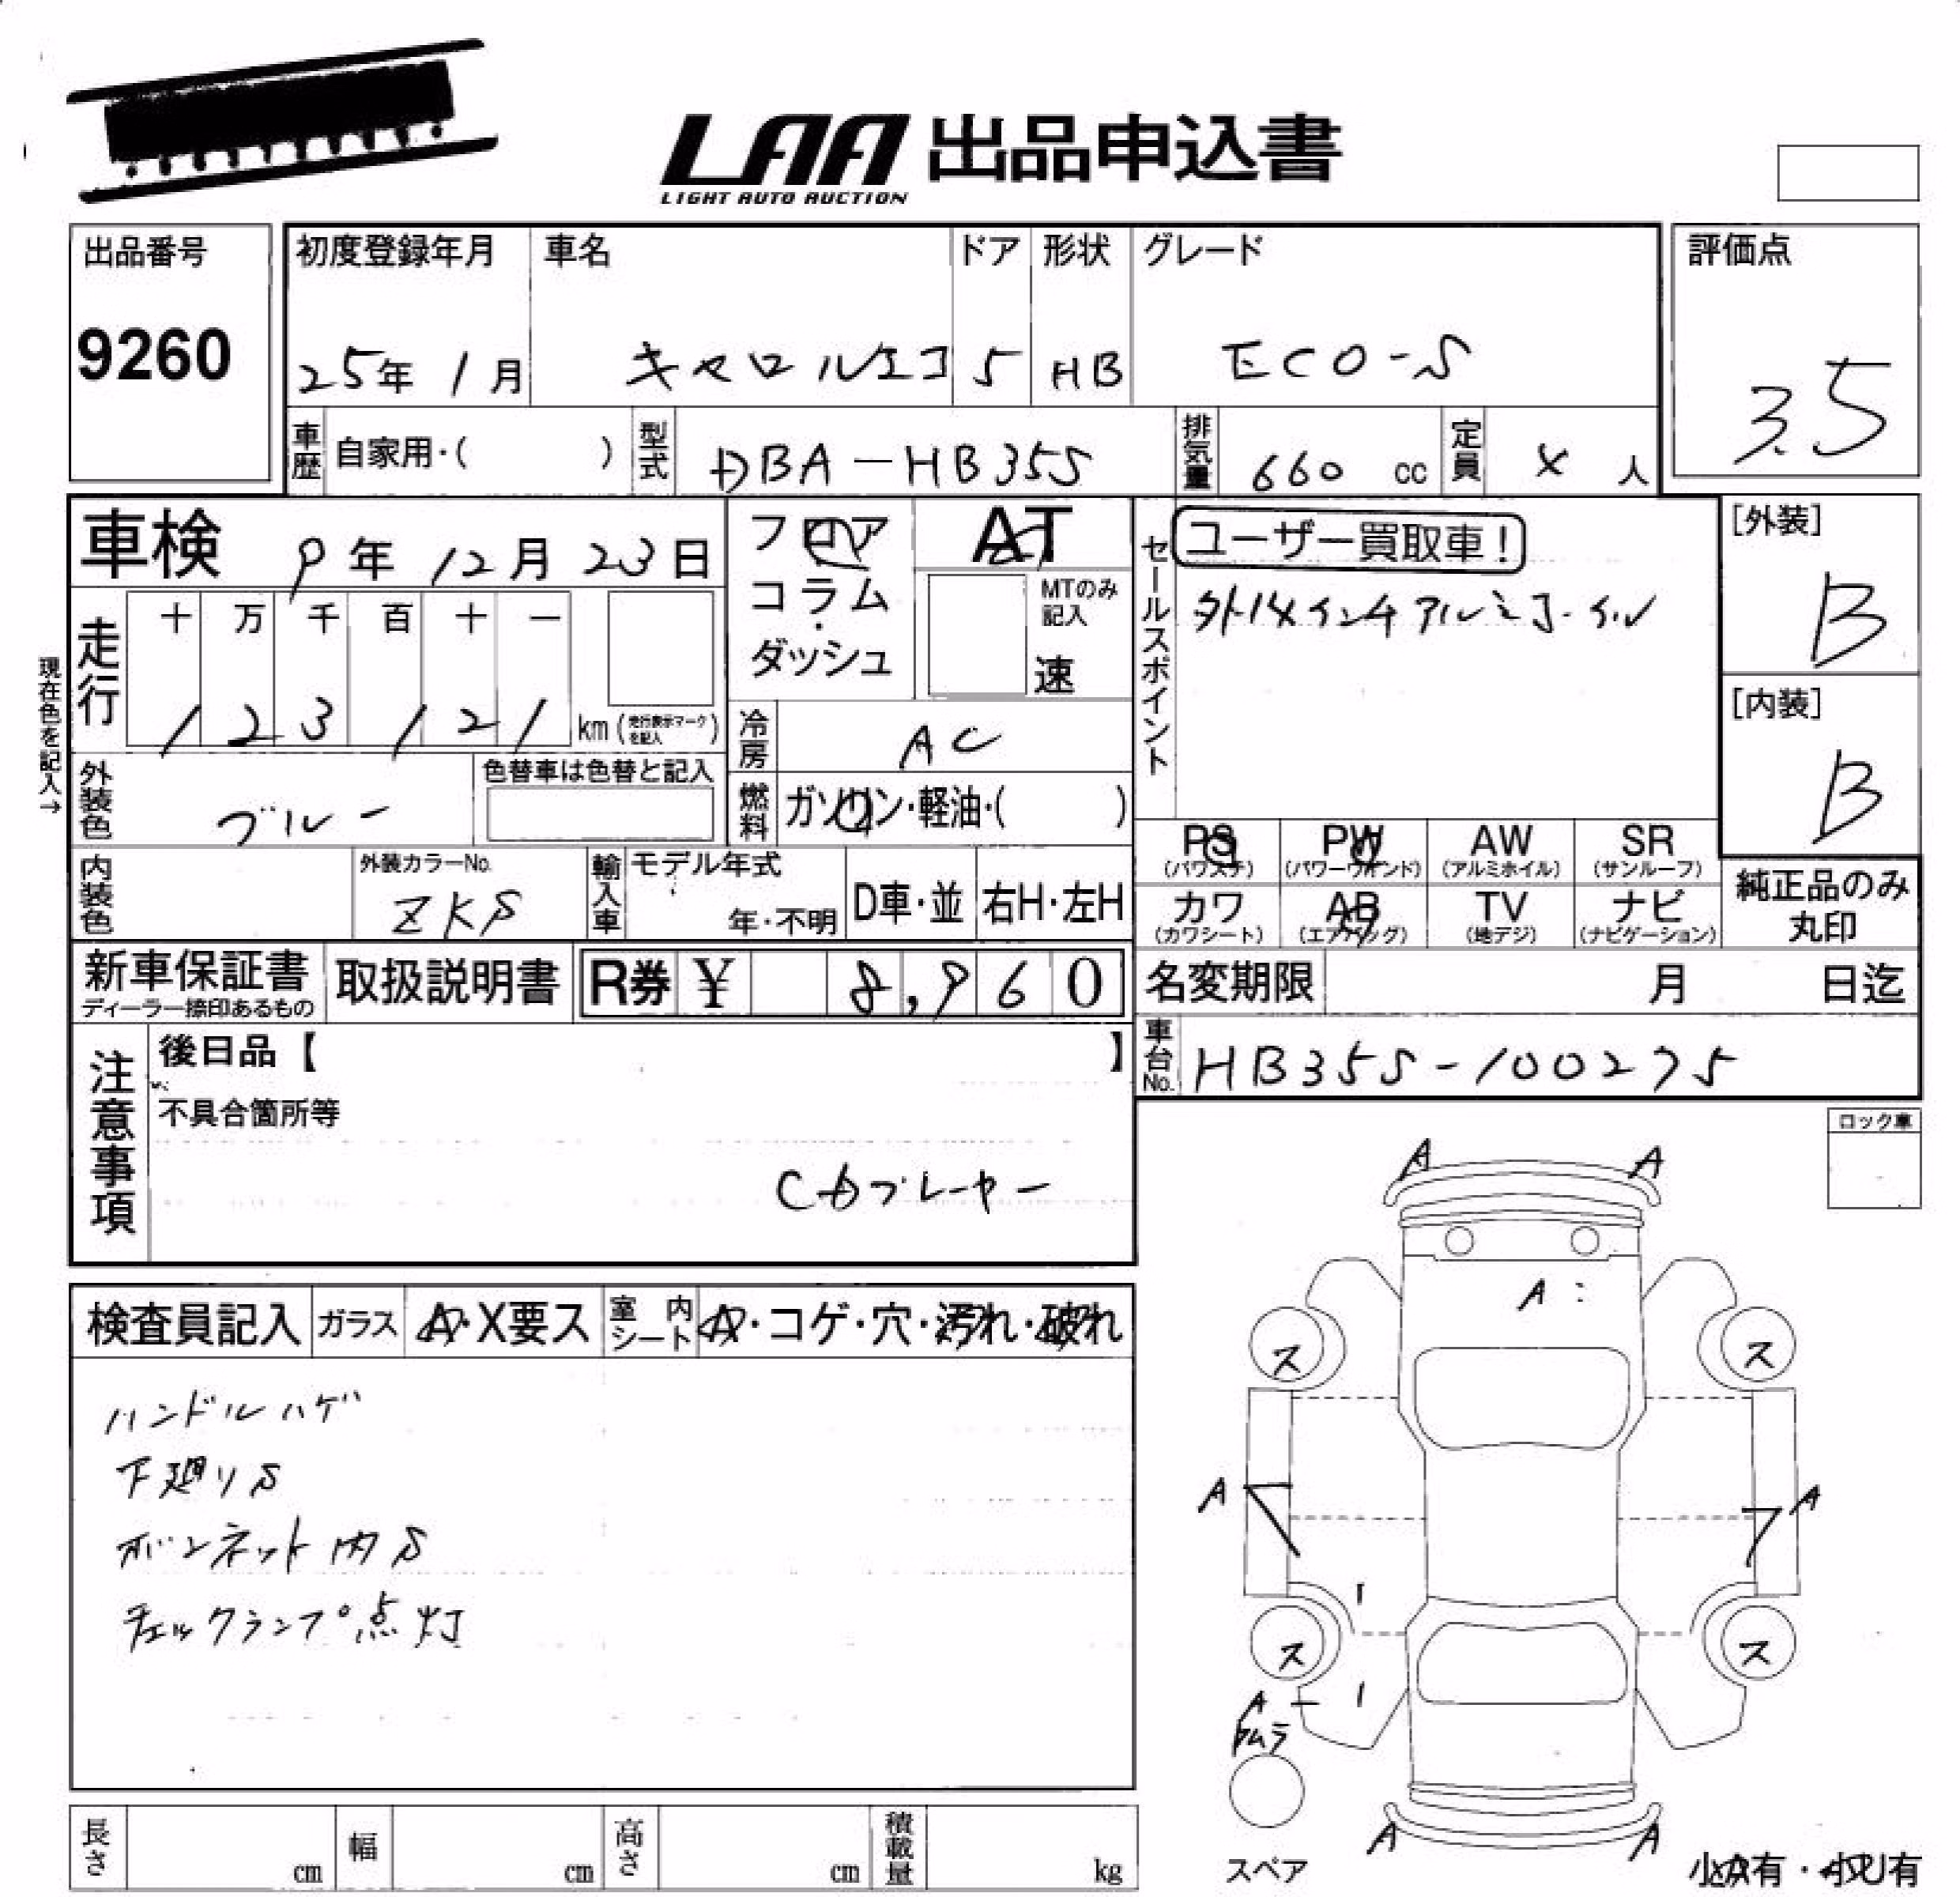 LAA 出品申込書
LIGHT AUTO AUCTION
出品番号
9260
初度登録年月
25年 1月
車名
キャロルエコ
ドア
5
形状
HB
グレード
ECO-S
評価点
3.5
車歴 自家用・( )
型式 DBA-HB35S
排気量 660 cc
定員 4 人
車検 9年 12月 23日
フロア
コラム
・
ダッシュ
AT
MTのみ記入
速
セールスポイント
ユーザー買取車!
外14インチアルミホイル
[外装]
B
[内装]
B
現在色を記入→
走行
十 万 千 百 十 一
1 2 3 1 2 1 km (走行表示マークを記入)
冷房 AC
外装色 ブルー
色替車は色替と記入
燃料 ガソリン・軽油・( )
PS (パワステ) PW (パワーウインド) AW (アルミホイル) SR (サンルーフ)
カワ (カワシート) AB (エアバッグ) TV (地デジ) ナビ (ナビゲーション)
純正品のみ丸印
内装色
外装カラーNo.
ZKS
輸入車
モデル年式
年・不明
D車・並 右H・左H
新車保証書
ディーラー捺印あるもの
取扱説明書
R券 ¥ 8,960
名変期限 月 日迄
車台No. HB35S-100275
注意事項
後日品【 】
不具合箇所等
CDプレーヤー
ロック車
検査員記入 ガラス A・X要ス 室内シート A・コゲ・穴・汚れ・破れ
ハンドルハゲ
下廻りS
ボンネット内S
チェックランプ点灯
A A
A
ス ス
A A
ス ス
A
ムラ
A A
スペア
小A有・小U有
長さ cm 幅 cm 高さ cm 積載量 kg